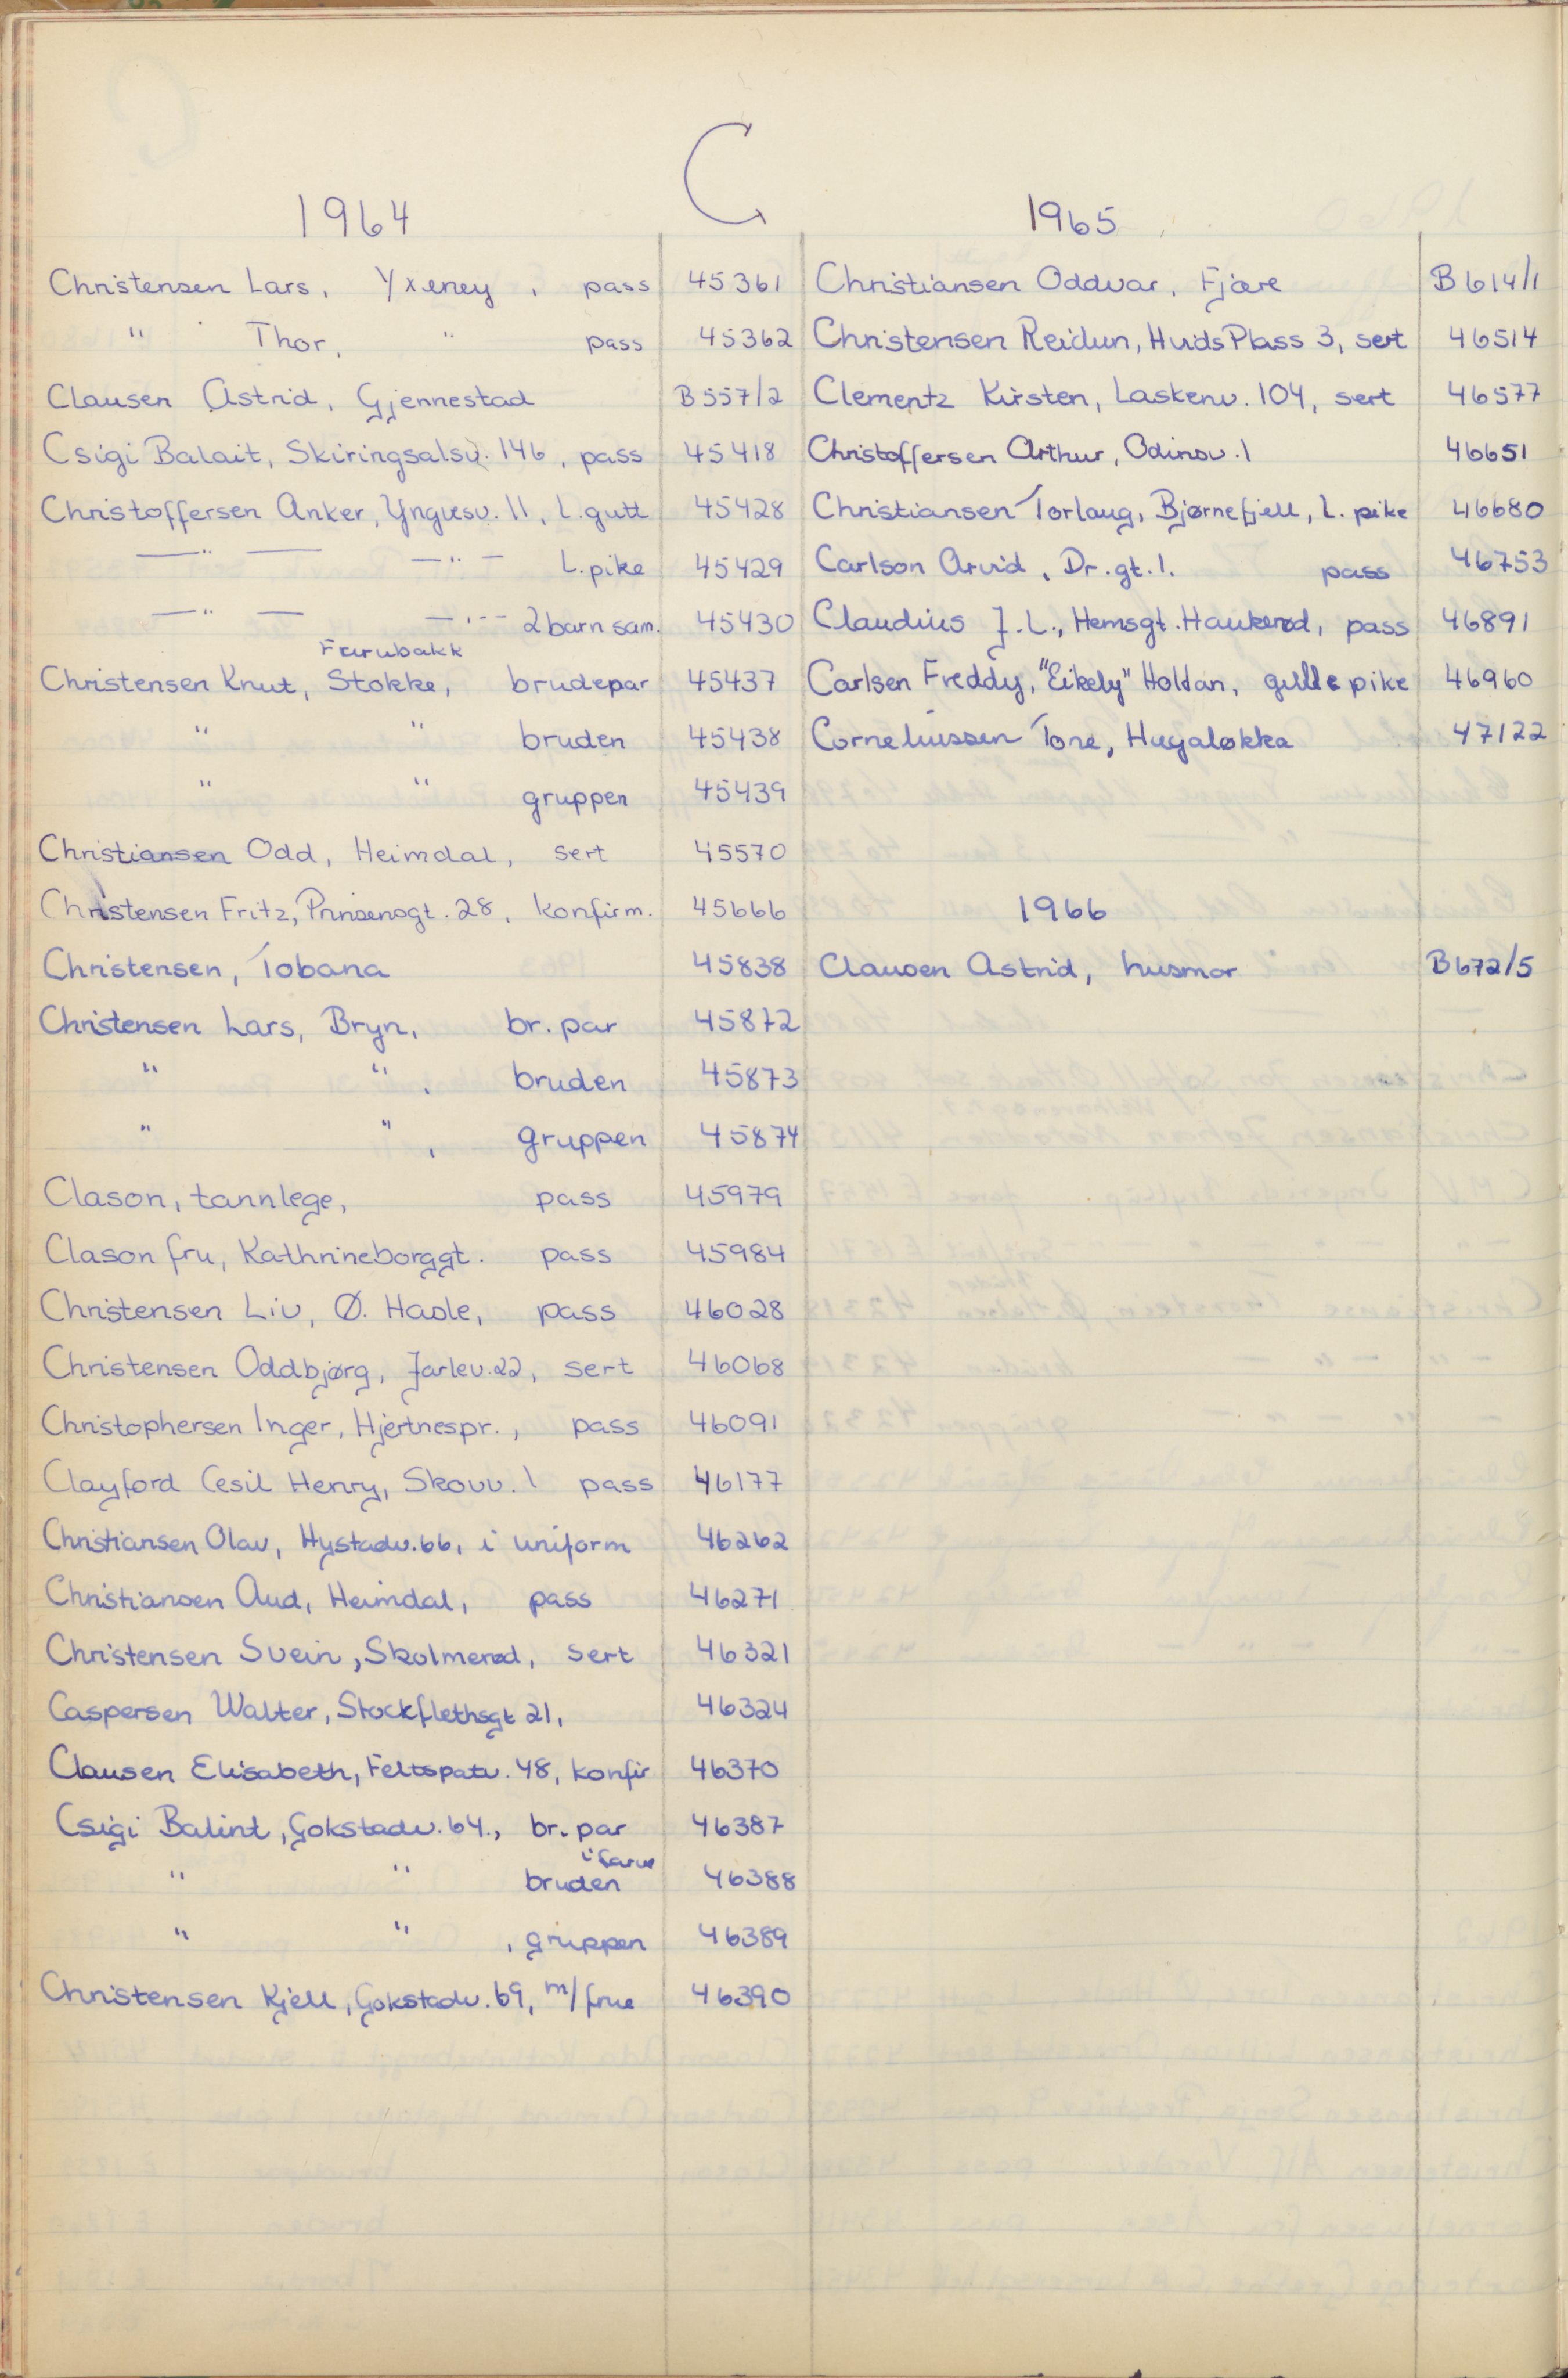 C
1964
Christensen Lars, Yxeney, pass 45361
" Thor, " pass 45362
Clausen Astrid, Gjennestad B557/2
Csigi Balait, Skiringsalsv. 146, pass 45418
Christoffersen Anker, Yngvesv. 11, L. gutt 45428
—"— —"— L. pike 45429
—"— —"— 2 barn sam. 45430
Furubakk
Christensen Knut, Stokke, brudepar 45437
" " bruden 45438
" " gruppen 45439
Christiansen Odd, Heimdal, sert 45570
Christensen Fritz, Prinsensgt. 28, konfirm. 45666
Christensen, Tobana 45838
Christensen Lars, Bryn, br. par 45872
" ", bruden 45873
" ", gruppen 45874
Clason, tannlege, pass 45979
Clason fru, Kathrineborggt. pass 45984
Christensen Liv, Ø. Hasle, pass 46028
Christensen Oddbjørg, Jarlev. 22, sert 46068
Christophersen Inger, Hjertnespr., pass 46091
Clayford Cesil Henry, Skovv. 1 pass 46177
Christiansen Olav, Hystadv. 66, i uniform 46262
Christiansen Aud, Heimdal, pass 46271
Christensen Svein, Skolmerød, sert 46321
Caspersen Walter, Stockflethsgt 21, 46324
Clausen Elisabeth, Feltspatv. 48, konfir 46370
Csigi Balint, Gokstadv. 64., br. par 46387
" " bruden i farve 46388
" ", gruppen 46389
Christensen Kjell, Gokstadv. 69, m/frue 46390
1965
Christiansen Oddvar, Fjære B614/1
Christensen Reidun, Hvids Plass 3, sert 46514
Clementz Kirsten, Laskenv. 104, sert 46577
Christoffersen Arthur, Odinsv. 1 46651
Christiansen Torlaug, Bjørnefjell, L. pike 46680
Carlson Arvid, Dr. gt. 1. pass 46753
Claudius J. L., Hemsgt. Haukerød, pass 46891
Carlsen Freddy, "Eikely" Holtan, gulle pike 46960
Corneliussen Tone, Hugaløkka 47122
1966
Clausen Astrid, husmor B672/5